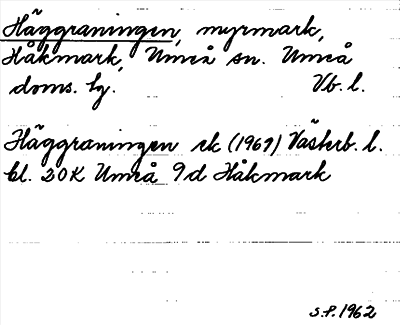 Häggraningen, myrmark,
Håkmark, Umeå sn. Umeå
doms. hg. Vb. l.
Häggraningen ek (1969) Västerb. l.
bl. 20K Umeå 9d Håkmark
S.P. 1962